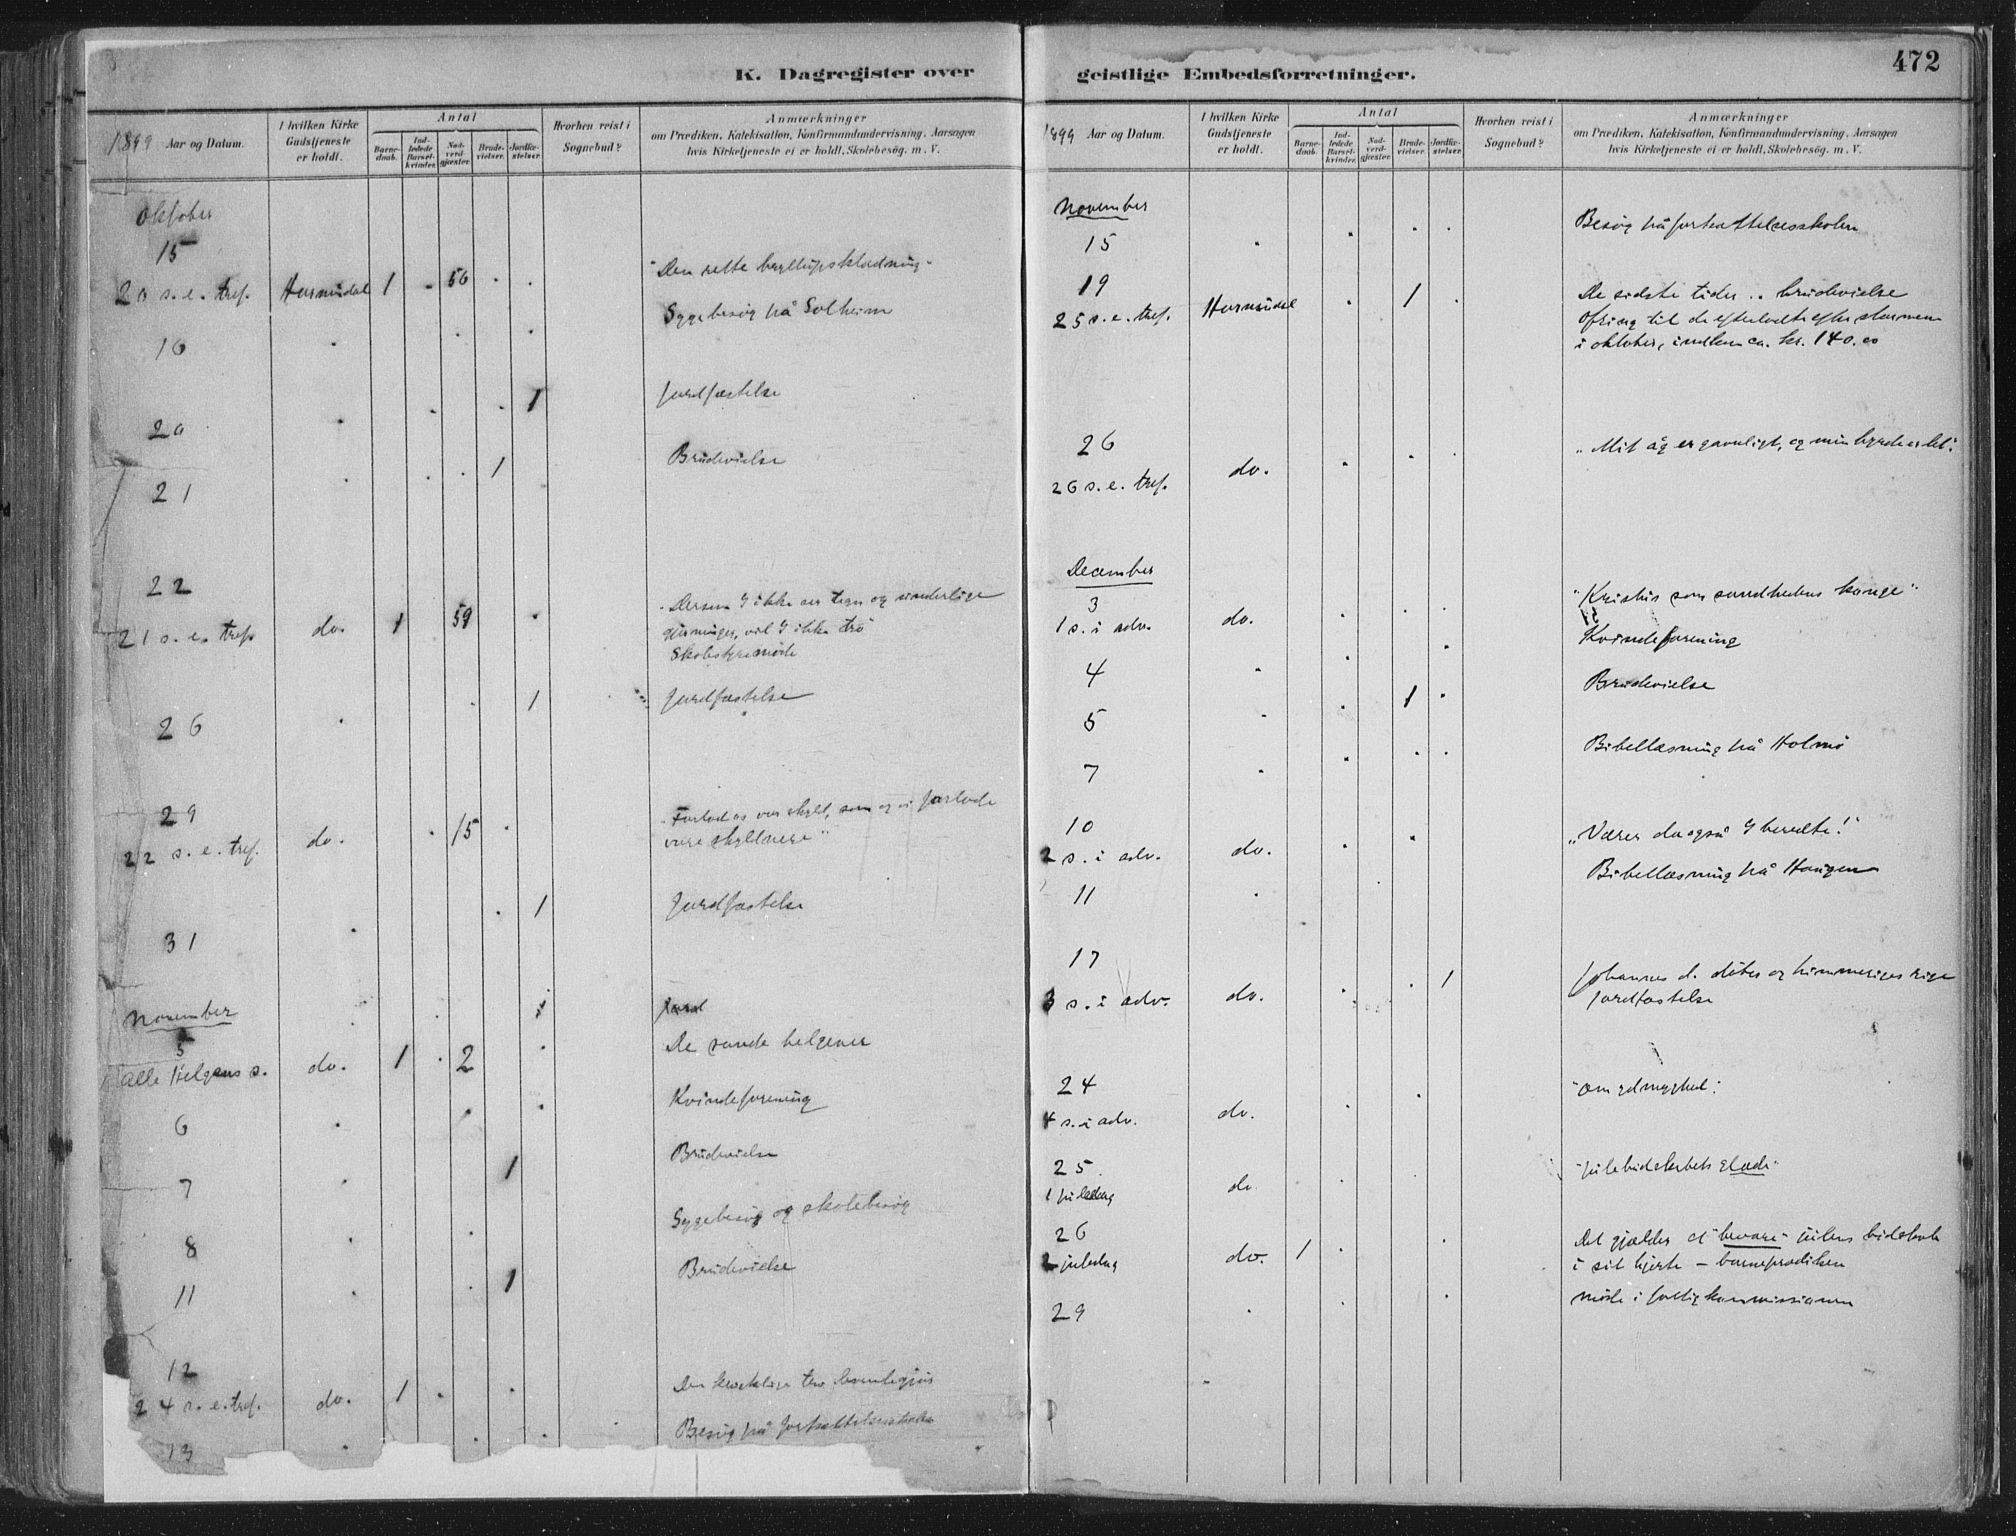 K. Dagregister over
1899 Aar og Datum.
I hvilken Kirke Gudstjeneste er holdt.
Antal
Barne-daab.
Ind-ledede Barsel-kvinder.
Nad-verd-gjester.
Brude-vielser.
Jordfæ-stelser.
Hvorhen reist i Sognebud?
Anmærkninger
om Prædiken, Katekisation, Konfirmandundervisning. Aarsagen
hvis Kirketjeneste ei er holdt. Skolebesøg. m. V.
Oktober
15
20 s.e. tref. 1 . 56 . . "Den rette bryllupsklædning"
Sygebesøg på Solheim
16
1 Jordfæstelse
20
1 Brudevielse
21
22
21 s.e. tref. do. 1 59 "Dersom I ikke ser tegn og underlige
gjerninger, vil I ikke tro
Skolestyremøde
1 Jordfæstelse
26
29
22 s.e. tref. do. . 15 . "Forlad os vor skyld, som og vi forlade
vore skyldnere"
1 Jordfæstelse
31
November
1 Jord
5
Alle Helgens s. do. 1 . 2 . De sande helgener
6 Kvindeforening
7 1 Brudevielse
8 Sygebesøg og skolebesøg
11 1 Brudevielse
12
24 s.e. tref. do. 1
13 Besøg på fortsættelsesskolen
geistlige Embedsforretninger.
472
1899 Aar og Datum.
I hvilken Kirke Gudstjeneste er holdt.
Antal
Barne-daab.
Ind-ledede Barsel-kvinder.
Nad-verd-gjester.
Brude-vielser.
Jordfæ-stelser.
Hvorhen reist i Sognebud?
Anmærkninger
om Prædiken, Katekisation, Konfirmandundervisning. Aarsagen
hvis Kirketjeneste ei er holdt. Skolebesøg. m. V.
November
15 Besøg på fortsættelsesskolen
19 De sidste tider .. brudevielse
25 s.e. tref. 1 Ofring til de efterladte efter stormen
i oktober, indkom ca. kr. 140.00
26 "Mit åg er gavnligt, og min byrde er let".
26 s.e. tref. do.
December
3 "Kristus som sandhedens konge"
1 s. i adv. do.
4 Kvindeforening
5 1 Brudevielse
7 Bibellæsning på Holmø
10 "Værer da også I beredte!"
2 s. i adv. do.
11 Bibellæsning på Haugen
17 Johannes d. døber og himmeriges rige
3 s. i adv. do. 1 Jordfæstelse
24 "Om ydmyghed".
4 s. i adv. do.
25 "Julebudskabets glæde"
1 juledag do.
26 Det gjælder at "bevare" julens budskab
2 juledag do. 1 i sit hjerte – barneprædiken
29 Møde i fattigkommissionen